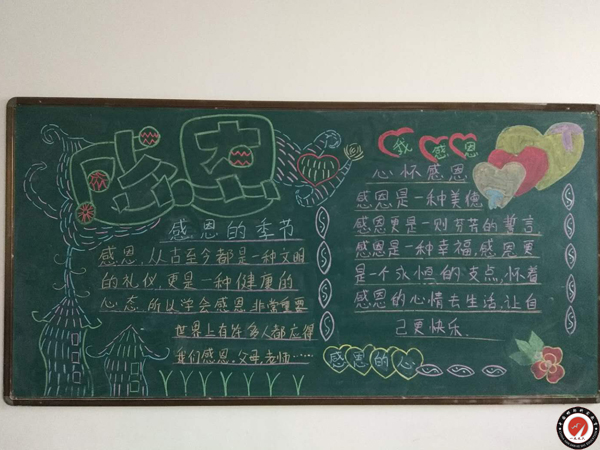 感恩
感恩的季节
感恩，从古至今都是一种文明
的礼仪，更是一种健康的
心态，所以学会感恩非常重要
世界上有许多人都值得
我们感恩，父母，老师……
我感恩
心怀感恩
感恩是一种美德
感恩更是一则芬芳的誓言
感恩是一种幸福，感恩更
是一个永恒的支点，怀着
感恩的心情去生活，让自
己更快乐.
感恩的心